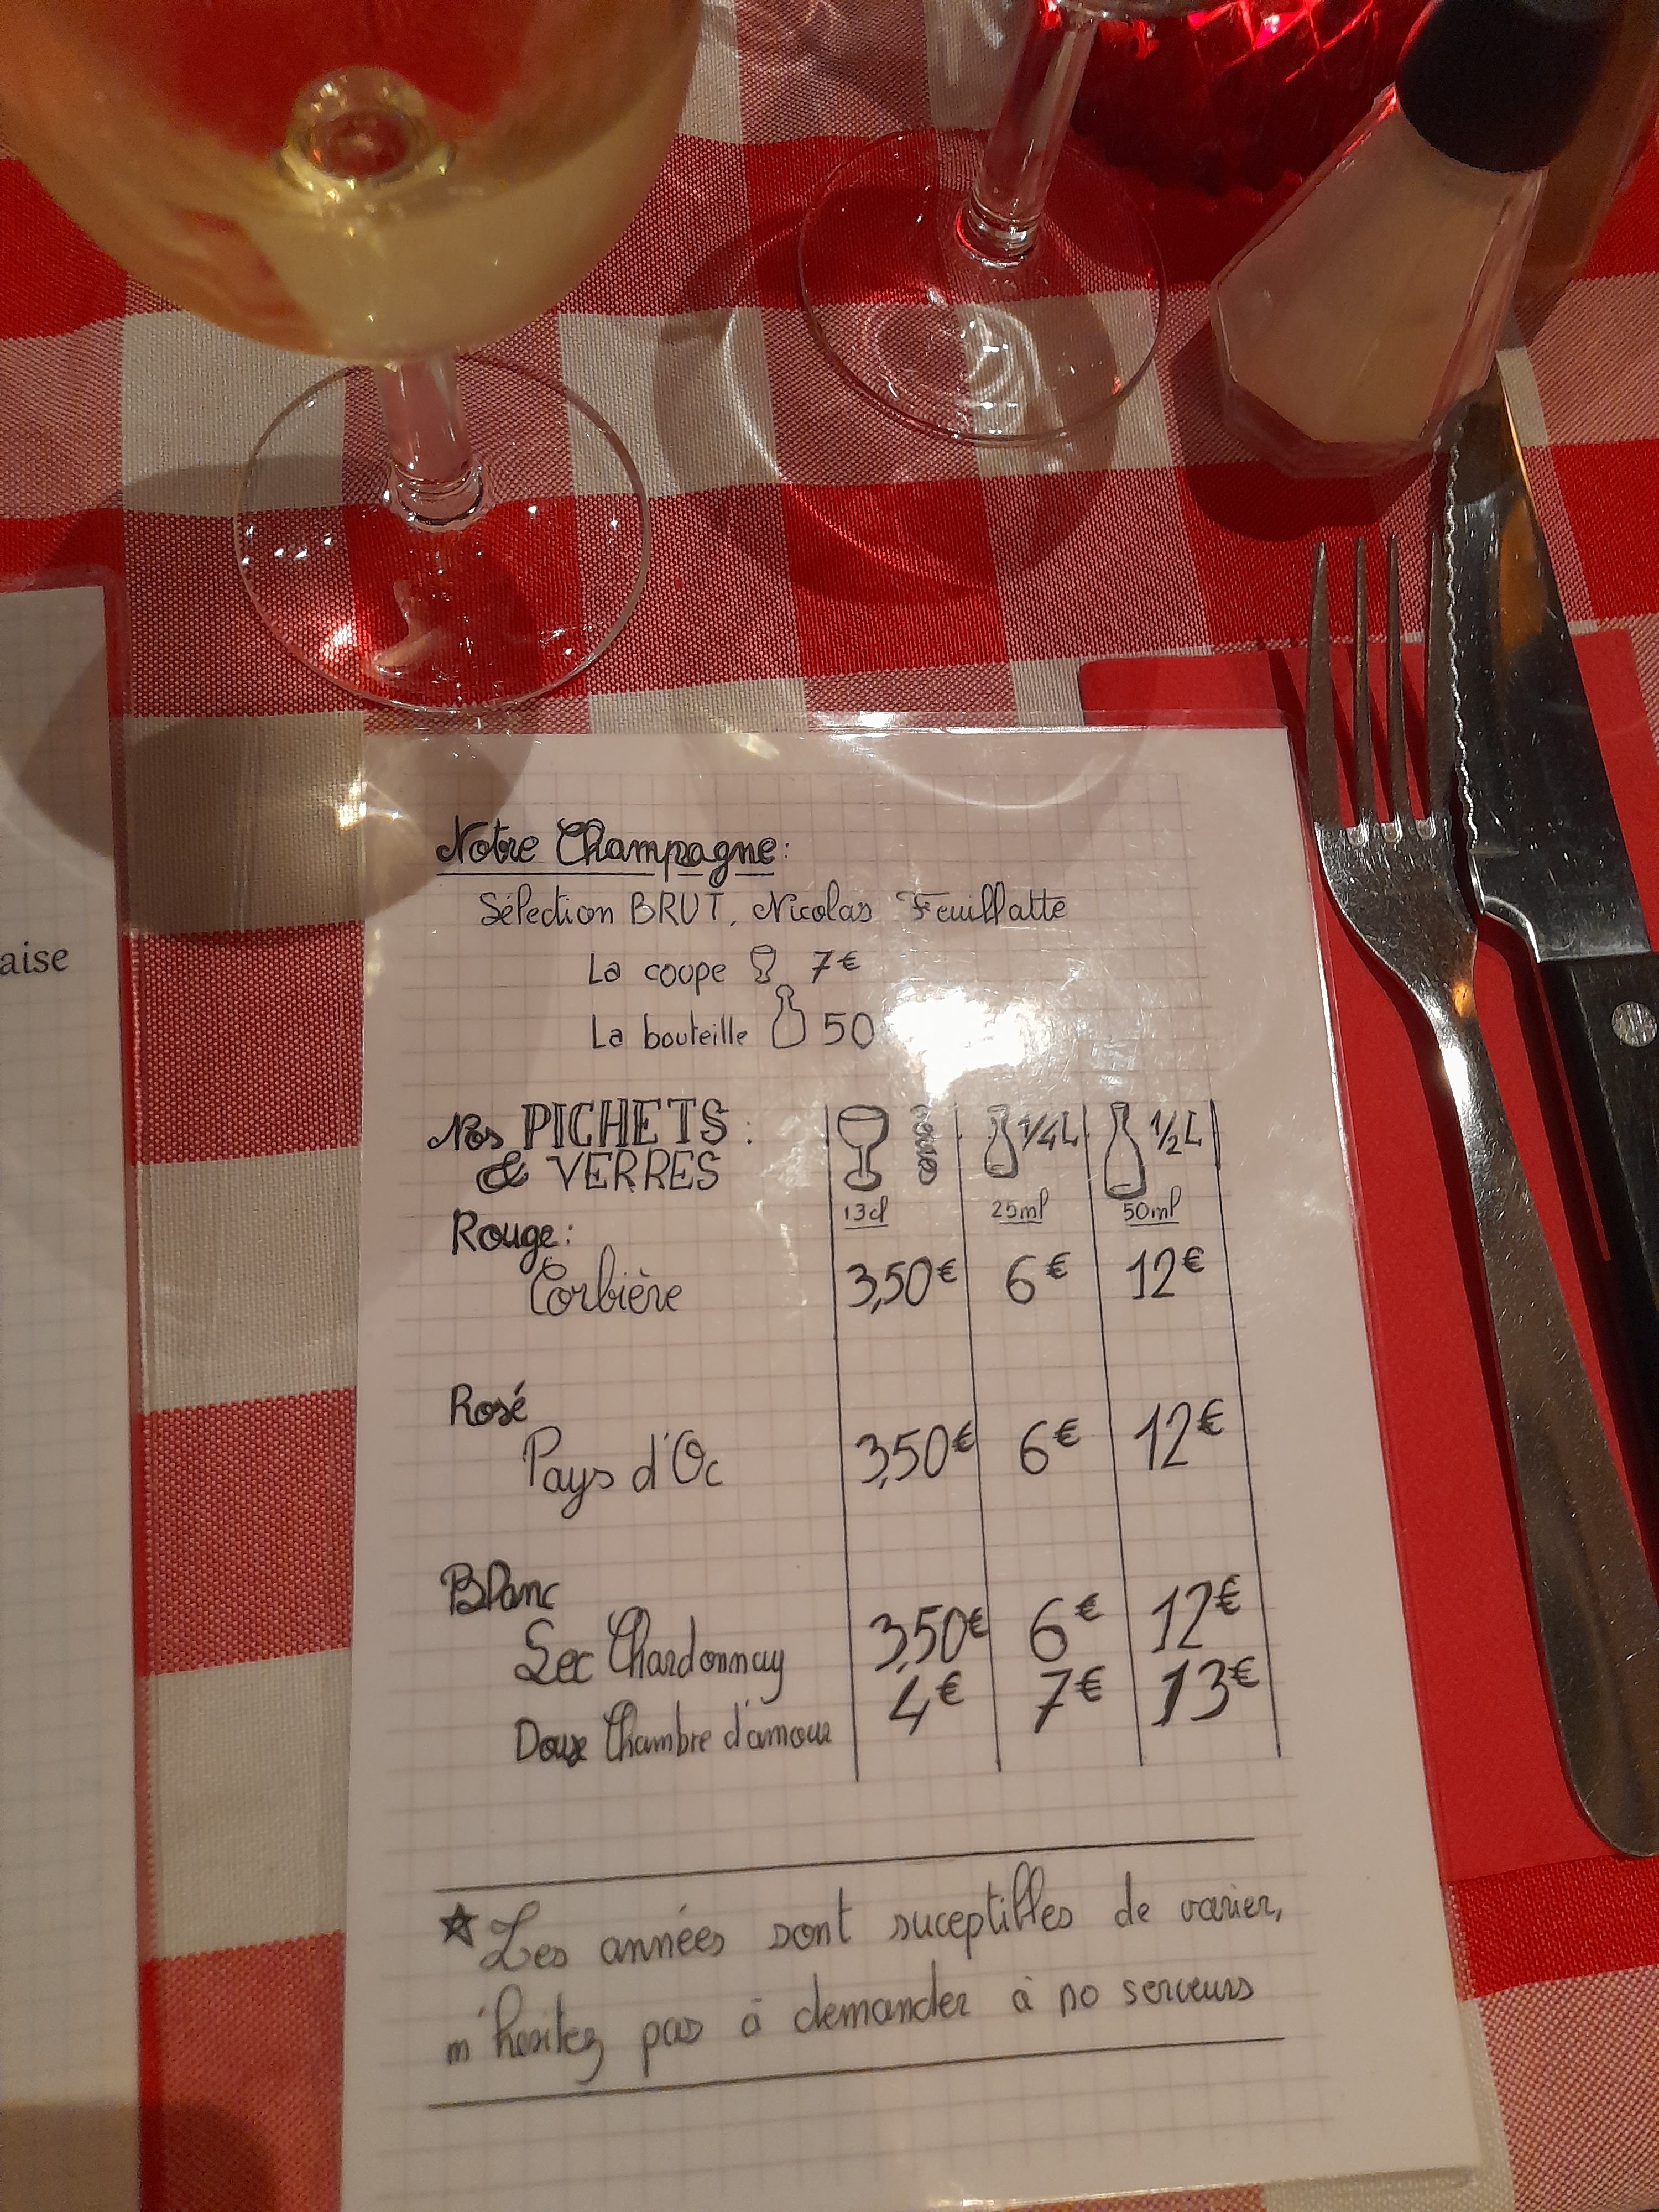 aise
Notre Champagne:
Sélection BRUT, Nicolas Feuillatte
La coupe 7€
La bouteille 50
Nos PICHETS : verre 1/4L 1/2L
& VERRES
13cl 25ml 50ml
Rouge:
Corbière 3,50€ 6€ 12€
Rosé
Pays d'Oc 3,50€ 6€ 12€
Blanc
Sec Chardonnay 3,50€ 6€ 12€
Doux Chambre d'amour 4€ 7€ 13€
☆ Les années sont suceptibles de varier,
n'hesitez pas à demander à no serveurs